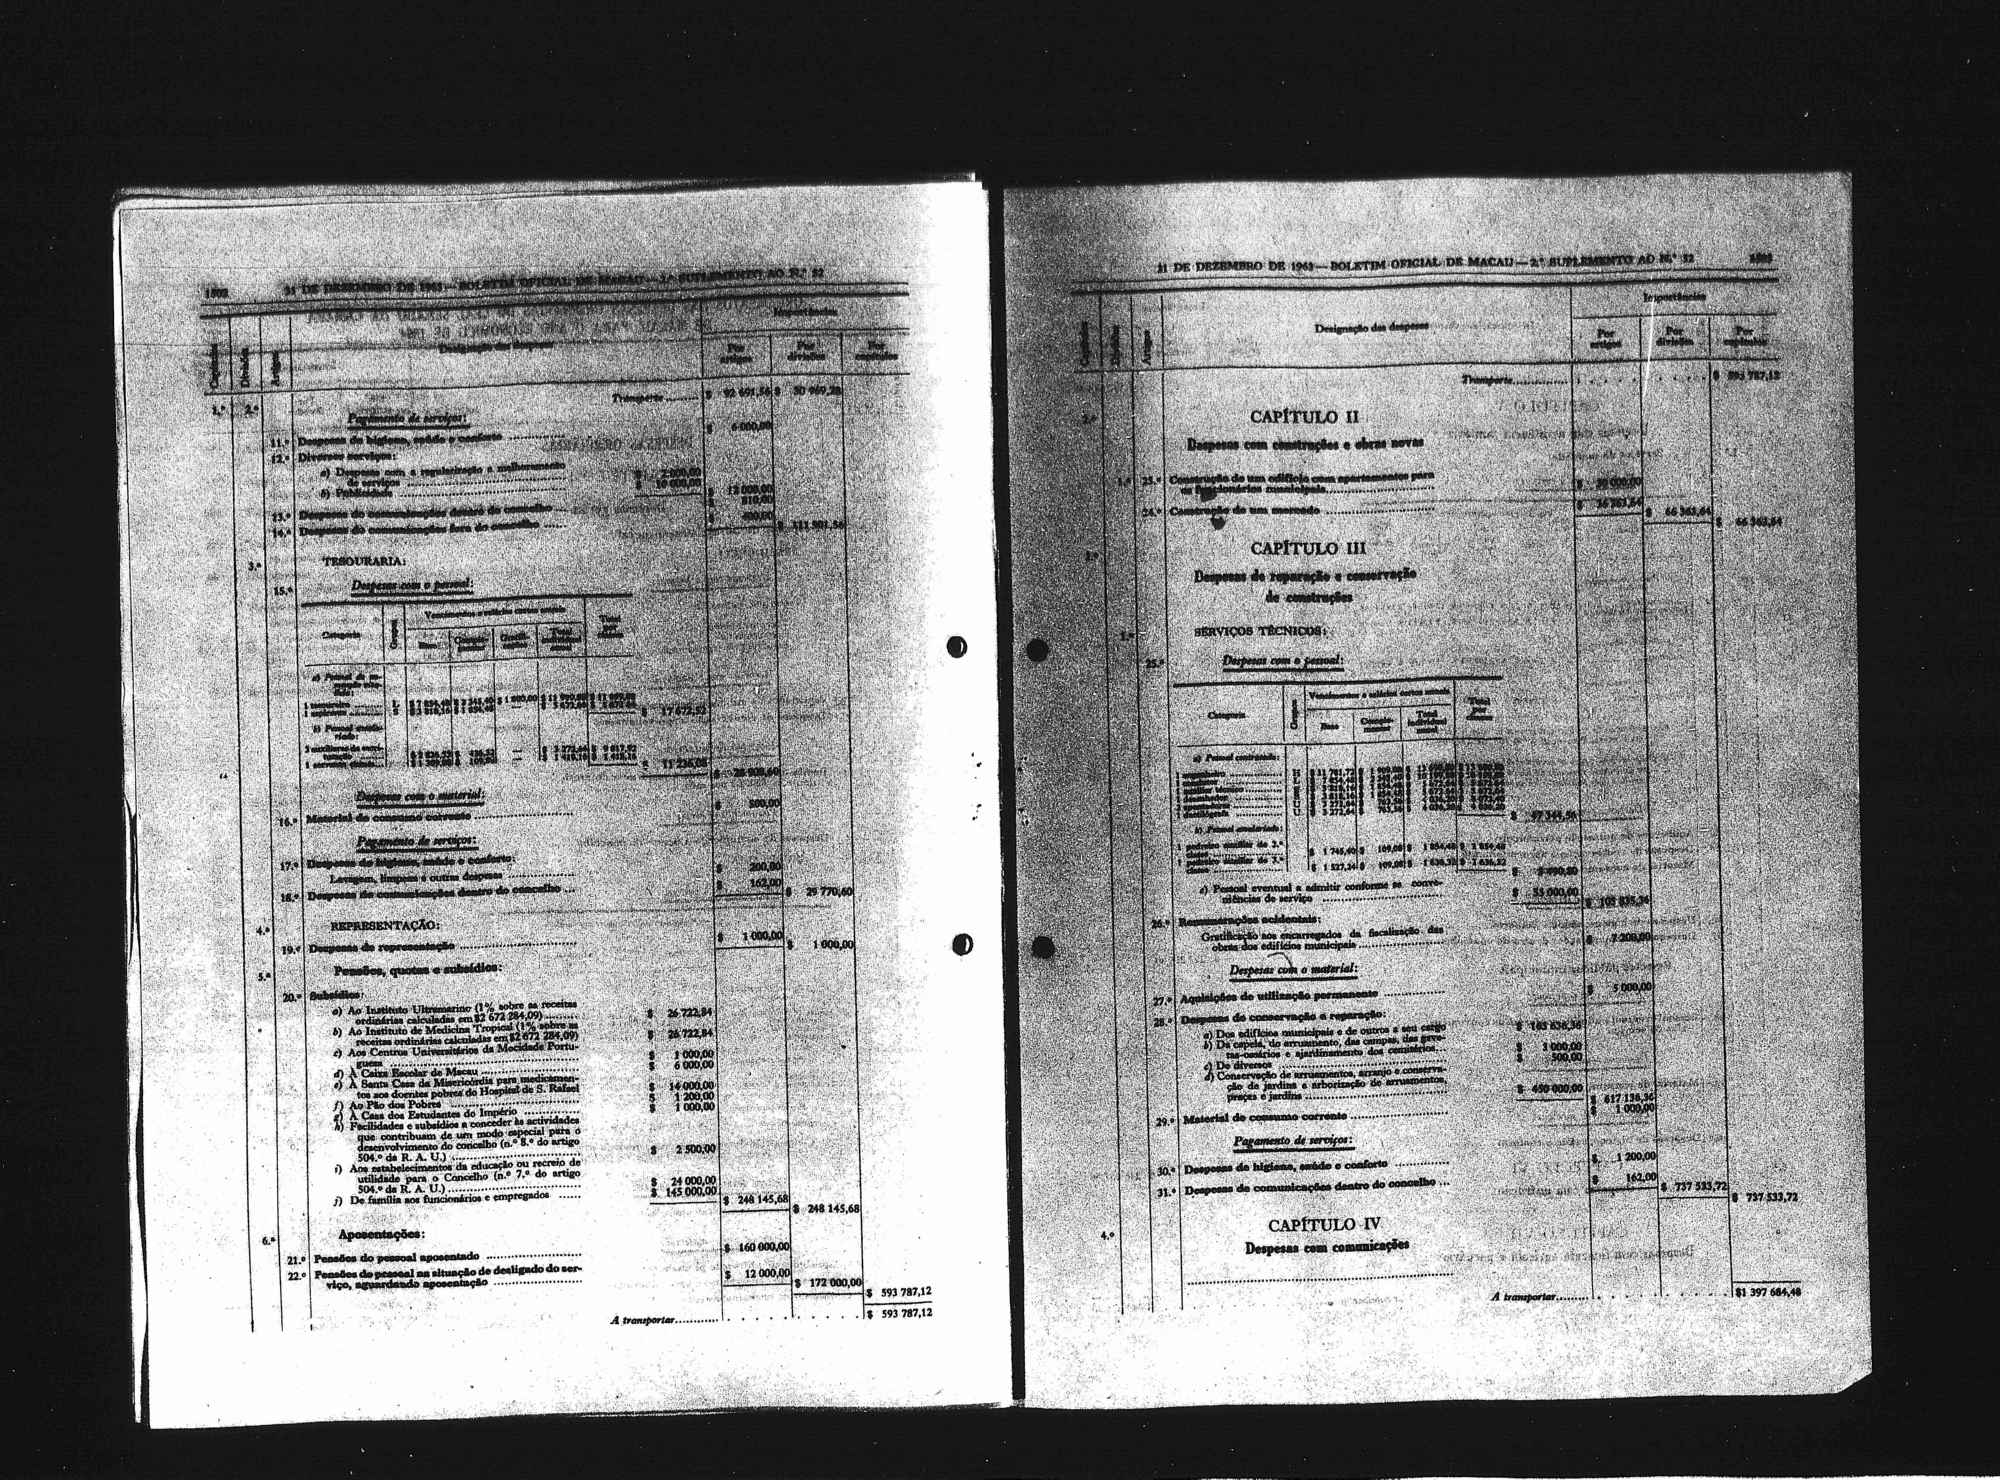 1802 31 DE DEZEMBRO DE 1963 — BOLETIM OFICIAL DE MACAU — 2.º SUPLEMENTO AO N.º 52
Capítulos
Divisões
Artigos
Designação das despesas
Importâncias
Por artigos
Por divisões
Por capítulos
Transporte ......... $ 92 691,56 $ 30 969,28
1.º 2.º
Pagamento de serviços:
11.º Despesas de higiene, saúde e conforto .................. $ 6 000,00
12.º Diversos serviços:
a) Despesas com a regularização e melhoramento
de serviços .................. $ 2 000,00
b) Publicidade .................. $ 10 000,00
$ 12 000,00
13.º Despesas de comunicações dentro do concelho ... $ 810,00
14.º Despesas de comunicações fora do concelho ......
$ 111 901,56
3.º TESOURARIA:
15.º Despesas com o pessoal:
Categoria
Grupos
Vencimentos e salários certos anuais
Base
Comple-
mentar
Gratifi-
cações
Total
individual
anual
Total
por
classes
$ 17 672,52
$ 11 236,08
$ 28 908,60
Despesas com o material:
16.º Material de consumo corrente .................. $ 500,00
Pagamento de serviços:
17.º Despesas de higiene, saúde e conforto:
Lavagem, limpeza e outras despesas .................. $ 200,00
18.º Despesas de comunicações dentro do concelho ... $ 162,00
$ 29 770,60
4.º REPRESENTAÇÃO:
19.º Despesas de representação .................. $ 1 000,00
$ 1 000,00
5.º Pensões, quotas e subsídios:
20.º Subsídios:
a) Ao Instituto Ultramarino (1% sobre as receitas
ordinárias calculadas em $2 672 284,09) ......... $ 26 722,84
b) Ao Instituto de Medicina Tropical (1% sobre as
receitas ordinárias calculadas em $2 672 284,09) $ 26 722,84
c) Aos Centros Universitários da Mocidade Portu-
guesa .................. $ 1 000,00
d) À Caixa Escolar de Macau .................. $ 6 000,00
e) À Santa Casa da Misericórdia para medicamen-
tos aos doentes pobres do Hospital de S. Rafael $ 14 000,00
f) Ao Pão dos Pobres .................. $ 1 200,00
g) À Casa dos Estudantes do Império .................. $ 1 000,00
h) Facilidades e subsídios a conceder às actividades
que contribuam de um modo especial para o
desenvolvimento do concelho (n.º 8.º do artigo
504.º da R. A. U.) .................. $ 2 500,00
i) Aos estabelecimentos da educação ou recreio de
utilidade para o Concelho (n.º 7.º do artigo
504.º da R. A. U.) .................. $ 24 000,00
j) De família aos funcionários e empregados ...... $ 145 000,00
$ 248 145,68
$ 248 145,68
6.º Aposentações:
21.º Pensões do pessoal aposentado .................. $ 160 000,00
22.º Pensões do pessoal na situação de desligado do ser-
viço, aguardando aposentação .................. $ 12 000,00
$ 172 000,00
$ 593 787,12
A transportar............ $ 593 787,12
31 DE DEZEMBRO DE 1963 — BOLETIM OFICIAL DE MACAU — 2.º SUPLEMENTO AO N.º 52 1803
Capítulos
Divisões
Artigos
Designação das despesas
Importâncias
Por artigos
Por divisões
Por capítulos
Transporte............ $ 593 787,12
2.º CAPÍTULO II
Despesas com construções e obras novas
1.º 23.º Construção de um edifício com apartamentos para
os funcionários municipais.................. $ 30 000,00
24.º Construção de um mercado .................. $ 36 363,64
$ 66 363,64
$ 66 363,64
3.º CAPÍTULO III
Despesas de reparação e conservação
de construções
1.º SERVIÇOS TÉCNICOS:
25.º Despesas com o pessoal:
Categoria
Grupos
Vencimentos e salários certos anuais
Base
Comple-
mentar
Total
individual
anual
Total
por
classes
a) Pessoal contratado:
$ 47 344,56
b) Pessoal assalariado:
1 pedreiro auxiliar de 2.ª
classe $ 1 745,40 $ 109,08 $ 1 854,48 $ 1 854,48
1 pedreiro auxiliar de 3.ª
classe $ 1 527,24 $ 109,08 $ 1 636,32 $ 1 636,32
$ 3 490,80
c) Pessoal eventual a admitir conforme as conve-
niências de serviço .................. $ 55 000,00
$ 105 835,36
26.º Remunerações acidentais:
Gratificação aos encarregados da fiscalização das
obras dos edifícios municipais .................. $ 7 200,00
Despesas com o material:
27.º Aquisições de utilização permanente .................. $ 5 000,00
28.º Despesas de conservação e reparação:
a) Dos edifícios municipais e de outros a seu cargo $ 163 636,36
b) Da capela, do arruamento, das campas, das gave-
tas-ossários e ajardinamento dos cemitérios... $ 3 000,00
c) De diversos .................. $ 500,00
d) Conservação de arruamentos, arranjo e conserva-
ção de jardins e arborização de arruamentos,
praças e jardins .................. $ 450 000,00
$ 617 136,36
29.º Material de consumo corrente .................. $ 1 000,00
Pagamento de serviços:
30.º Despesas de higiene, saúde e conforto .................. $ 1 200,00
31.º Despesas de comunicações dentro do concelho ... $ 162,00
$ 737 533,72
$ 737 533,72
4.º CAPÍTULO IV
Despesas com comunicações
A transportar......... $1 397 684,48